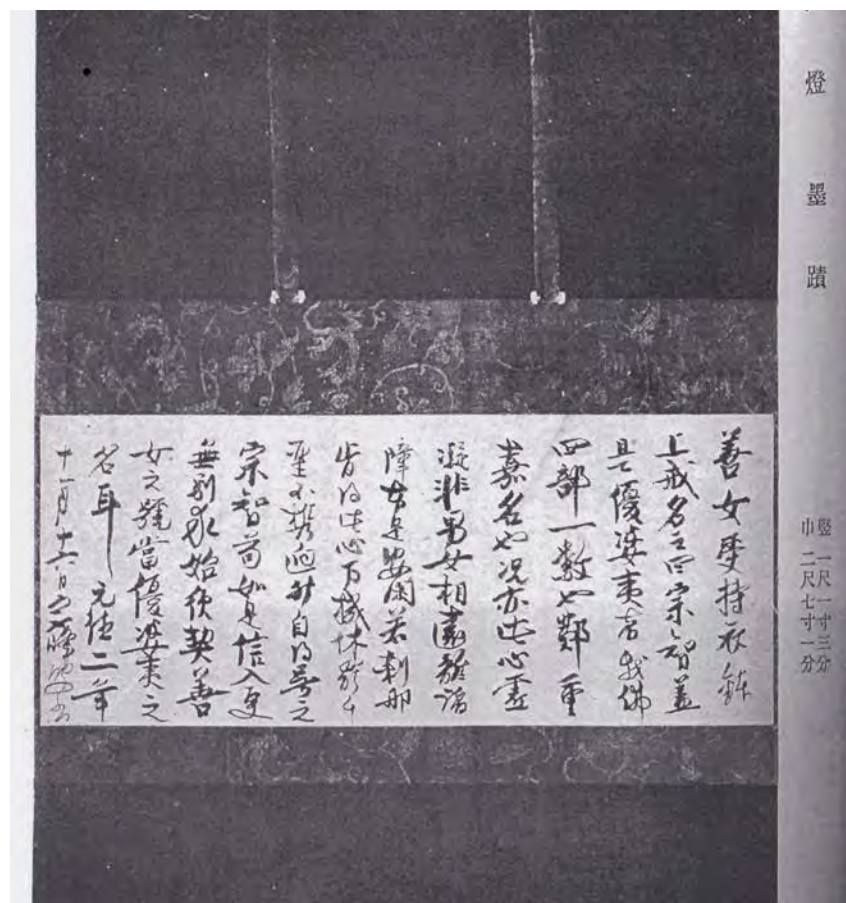 燈墨蹟
竪一尺一寸三分
巾二尺七寸一分
善女受持衣鉢
上戒名之曰宗智蓋
是優婆夷者我佛
四部一数也鄭重
嘉名也况亦此心靈
凝非男女相遠離諸
障方是安閑若刹那
皆得此心万機休歇千
聖不携迥外自得号之
宗智苟如是信入更
無別求始契善
女之號當優婆夷之
名耳 元徳二年
十一月十六日